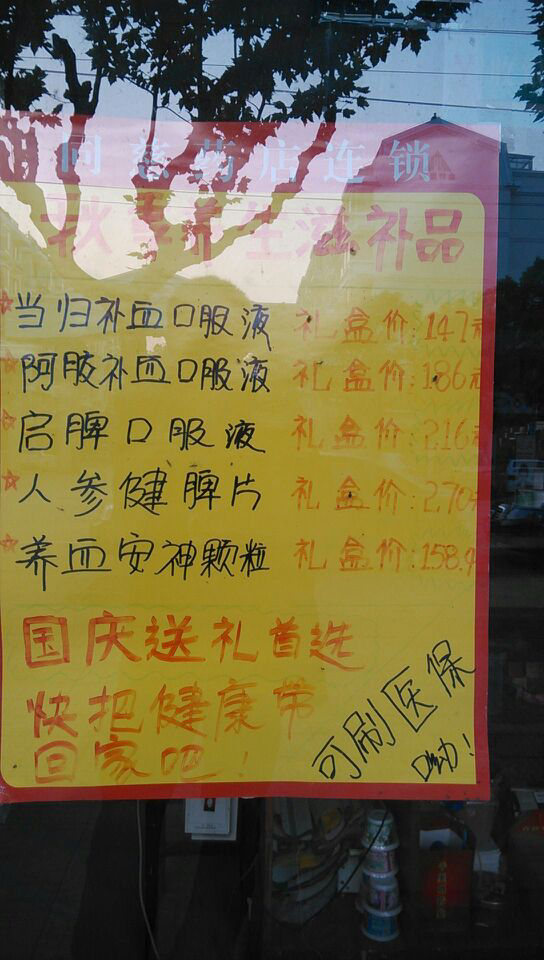 同慈药店连锁
秋季养生滋补品
当归补血口服液 礼盒价:147元
阿胶补血口服液 礼盒价:186元
启脾口服液 礼盒价:216元
人参健脾片 礼盒价:270元
养血安神颗粒 礼盒价:158.4
国庆送礼首选
快把健康带
回家吧!
可刷医保
呦!